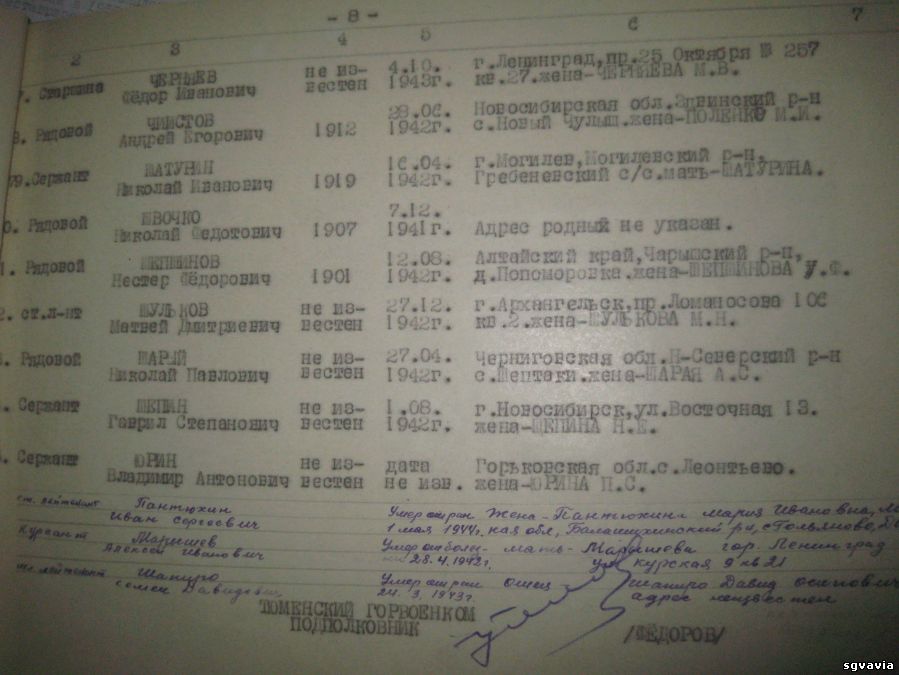 - 8 -
2 3 4 5 6 7
Старшина ЧЕРНЯЕВ не из- 4.10. г.Ленинград,пр.25 Октября № 257
Фёдор Иванович вестен 1943г. кв.27.жена-ЧЕРНЯЕВА М.В.
8. Рядовой ЧИИСТОВ 28.06. Новосибирская обл.Здвинский р-н
Андрей Егорович 1912 1942г. с.Новый Чулым.жена-ПОЛЕНКО М.И.
79.Сержант ШАТУРИН 16.04. г.Могилев,Могилевский р-н,
Николай Иванович 1919 1942г. Гребеневский с/с.мать-ШАТУРИНА.
0. Рядовой ШВОЧКО 7.12.
Николай Федотович 1907 1941г. Адрес родный не указан.
1. Рядовой ШЕПШИНОВ 12.08. Алтайский край,Чарышский р-н,
Нестер Фёдорович 1901 1942г. д.Попоморовка.жена-ШЕПШИНОВА У.Ф.
2. ст.л-нт ШУЛЬКОВ не из- 27.12. г.Архангельск.пр.Ломаносова 106
Матвей Дмитриевич вестен 1942г. кв.2.жена-ШУЛЬКОВА М.Н.
. Рядовой ШАРЫЙ не из- 27.04. Черниговская обл.Н-Северский р-н
Николай Павлович вестен 1942г. с.Шептаки.жена-ШАРАЯ А.С.
. Сержант ШЕПИН не из- 1.08. г.Новосибирск,ул.Восточная 13.
Гаврил Степанович вестен 1942г. жена-ШЕПИНА Н.Е.
. Сержант ЮРИН не из- дата Горьковская обл.с.Леонтьево.
Владимир Антонович вестен не изв. жена-ЮРИНА П.С.
ст. лейтенант Пантюхин Умер от ран Жена - Пантюхина Мария Ивановна,
Иван Сергеевич 1 мая 1944г. кая обл, Балашихинский р-н,
Курсант Марышев Умер от болез- мать - Марышева гор. Ленинград
Алексей Иванович 28.4.1942г. ул Курская 9 кв 21
лейтенант Шапиро Умер от ран отец Шапиро Давид Осипович
Семен Давидович 24.3.1943г. адрес неизвестен
ТЮМЕНСКИЙ ГОРВОЕНКОМ
ПОДПОЛКОВНИК /ФЁДОРОВ/
sgvavia